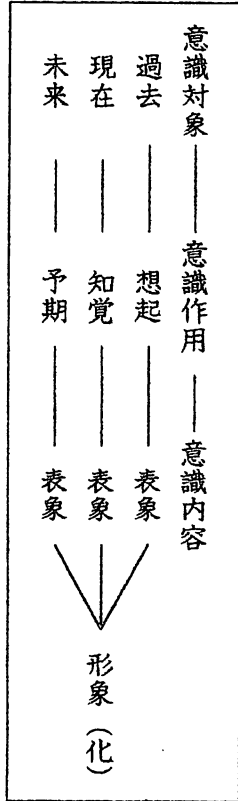 意識対象――意識作用――意識内容
過去――想起――表象
現在――知覚――表象
未来――予期――表象
形象（化）